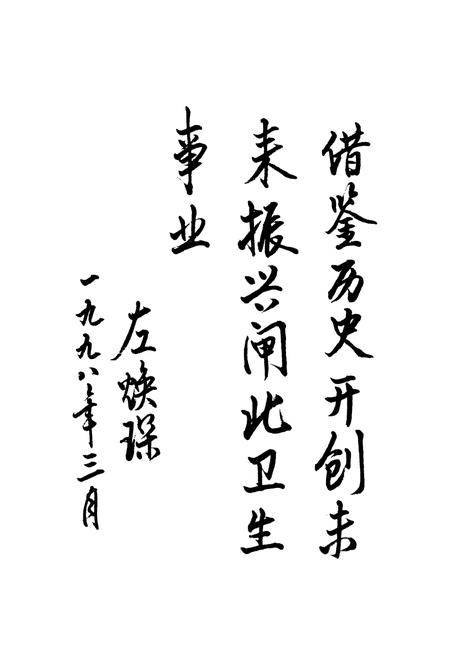 借鉴历史开创未
来振兴闸北卫生
事业
左焕琛
一九九八年三月